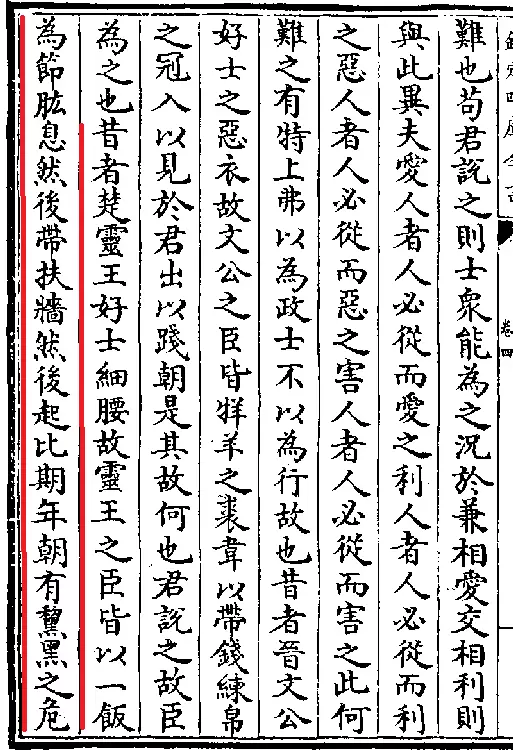 卷四
難也苟君說之則士衆能為之況於兼相愛交相利則
與此異夫愛人者人必從而愛之利人者人必從而利
之惡人者人必從而惡之害人者人必從而害之此何
難之有特上弗以為政士不以為行故也昔者晉文公
好士之惡衣故文公之臣皆牂羊之裘韋以帶錢練帛
之冠入以見於君出以踐朝是其故何也君說之故臣
為之也昔者楚靈王好士細腰故靈王之臣皆以一飯
為節肱息然後帶扶牆然後起比期年朝有黧黑之危